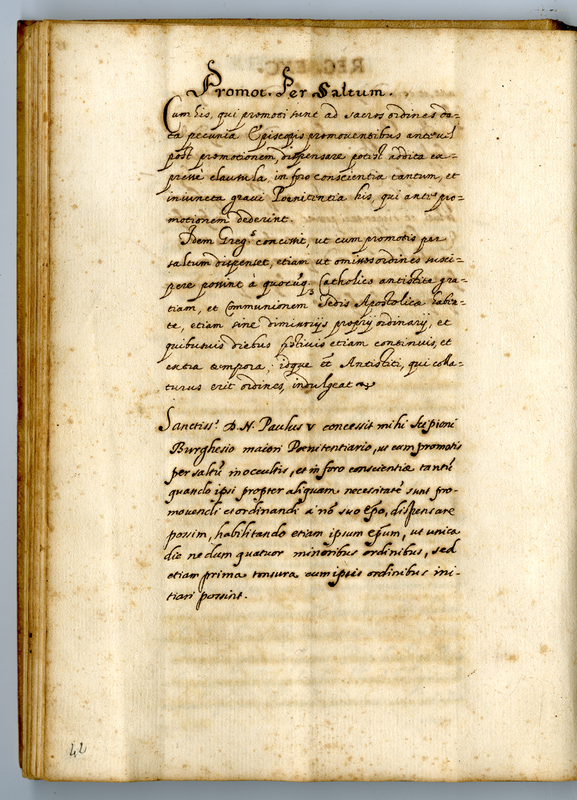 Promot. Per Saltum.
Cum his, qui promoti sunt ad sacros ordines da-
ta pecunia Episcopis promoventibus ante vel
post promotionem, dispensare potest addita ex-
pressa clausula, in foro conscientiæ tantum, et
iniuncta gravi Pœnitentia his, qui ante pro-
motionem dederint.
Idem Greg.s concessit, ut cum promotis per
saltum dispenset, etiam ut omissos ordines susci-
pere possint à quocũq. Catholico antistite gra-
tiam, et Communionem Sedis Apostolicæ haben-
te, etiam sine dimissorijs proprij ordinarij, et
quibusvis diebus festivis etiam continuis, et
extra tempora; idque et Antistiti, qui colla-
turus erit ordines, indulgeat
Sanctiss.s D. N. Paulus V concessit mihi Scipioni
Burghesio maiori Pœnitentiario, ut cum promotis
per saltũ in occultis, et in foro conscientiæ tantũ
quando ipsi propter aliquam necessitatẽ sunt pro-
movendi et ordinandi à suo Epo, dispensare
possim, habilitando etiam ipsum Epum, ut unica
die ne dum quatuor minoribus ordinibus, sed
etiam prima tonsura cum ipsis ordinibus ini-
tiari possint.
42